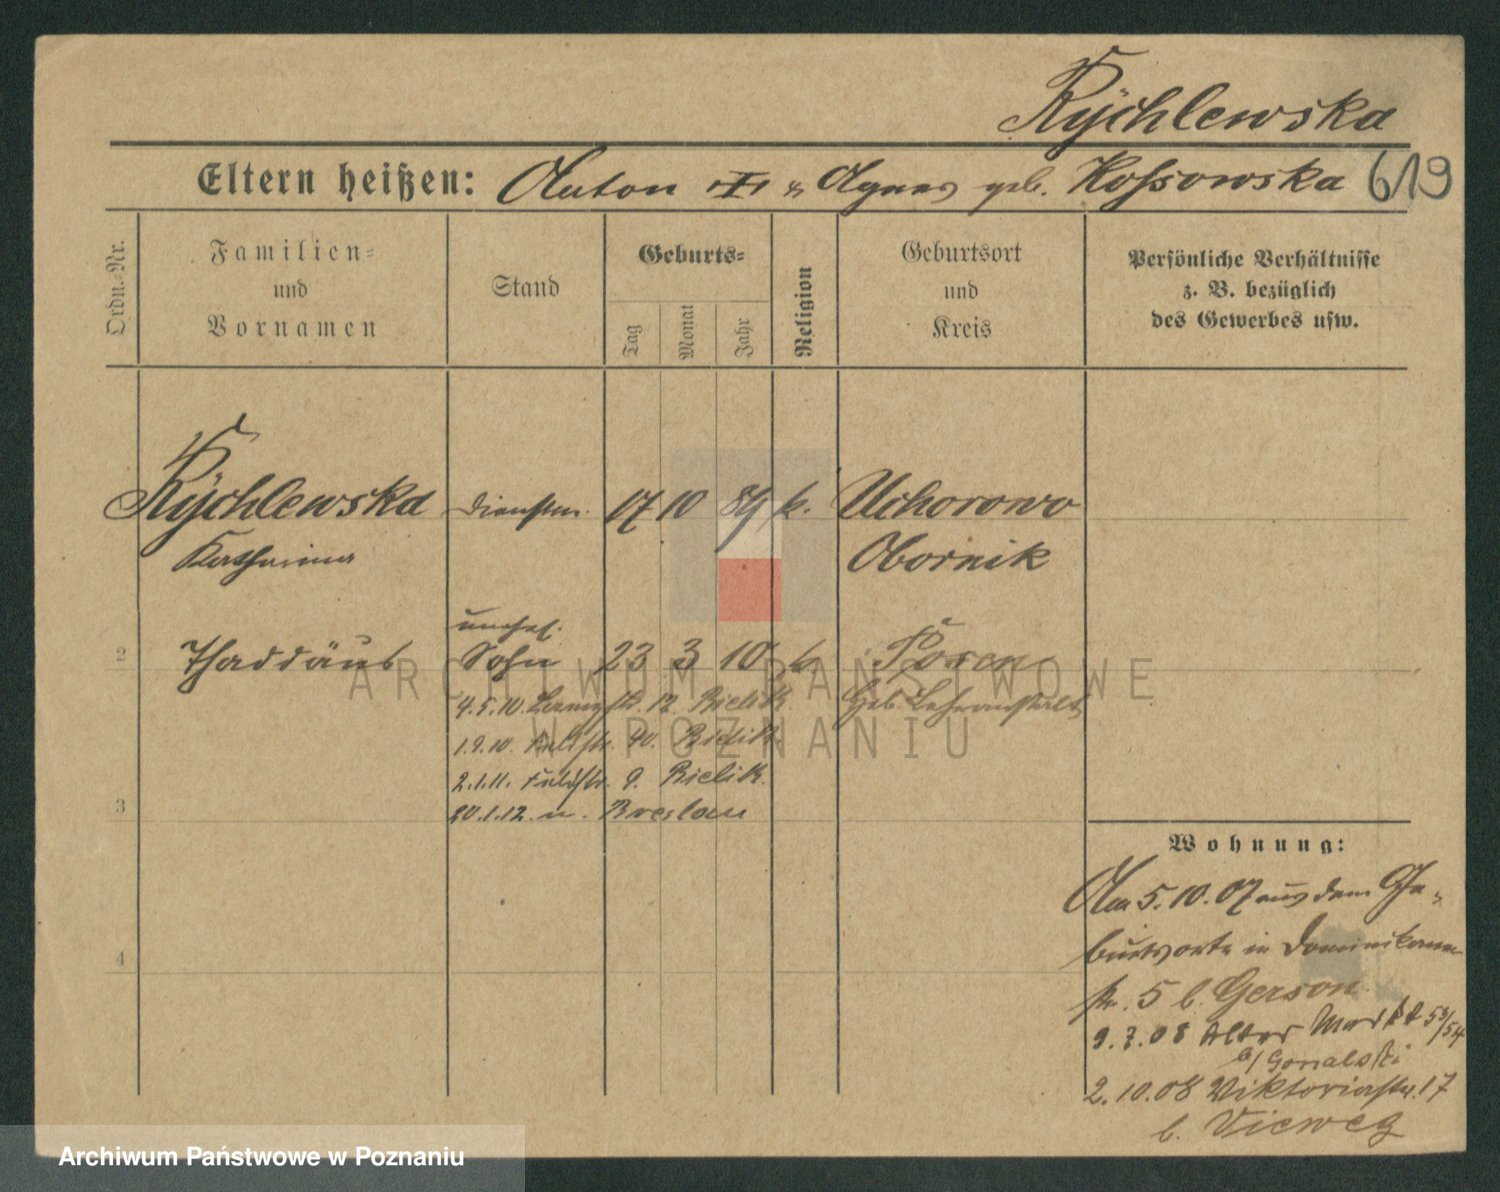 Rÿchlewska
Eltern heißen: Anton u. Agnes geb. Kossowska 619
Ordn.-Nr.
Familien-
und
Vornamen
Stand
Geburts-
Tag
Monat
Jahr
Religion
Geburtsort
und
Kreis
Persönliche Verhältnisse
z. B. bezüglich
des Gewerbes usw.
Rÿchlewska Dienstm. 17 10 89 k. Uchorowo
Katharina Obornik
unehel.
2 Thaddäus Sohn 23 3 10 k. Posen
4.5.10. 12. Bielik. Heb. Lehranstalt
1.9.10. Feldstr. 40. Bielik
2.1.11. Feldstr. 9. Bielik.
3 20.1.12. n. Breslau
4
Wohnung:
Am 5.10.07 aus dem Ge-
burtsorte in Dominikaner
str. 5 b. Gerson
9.7.08 Alter Markt 53/54
b/
2.10.08 Viktoriastr. 17
b. Vieweg
ARCHIWUM PAŃSTWOWE
W POZNANIU
Archiwum Państwowe w Poznaniu